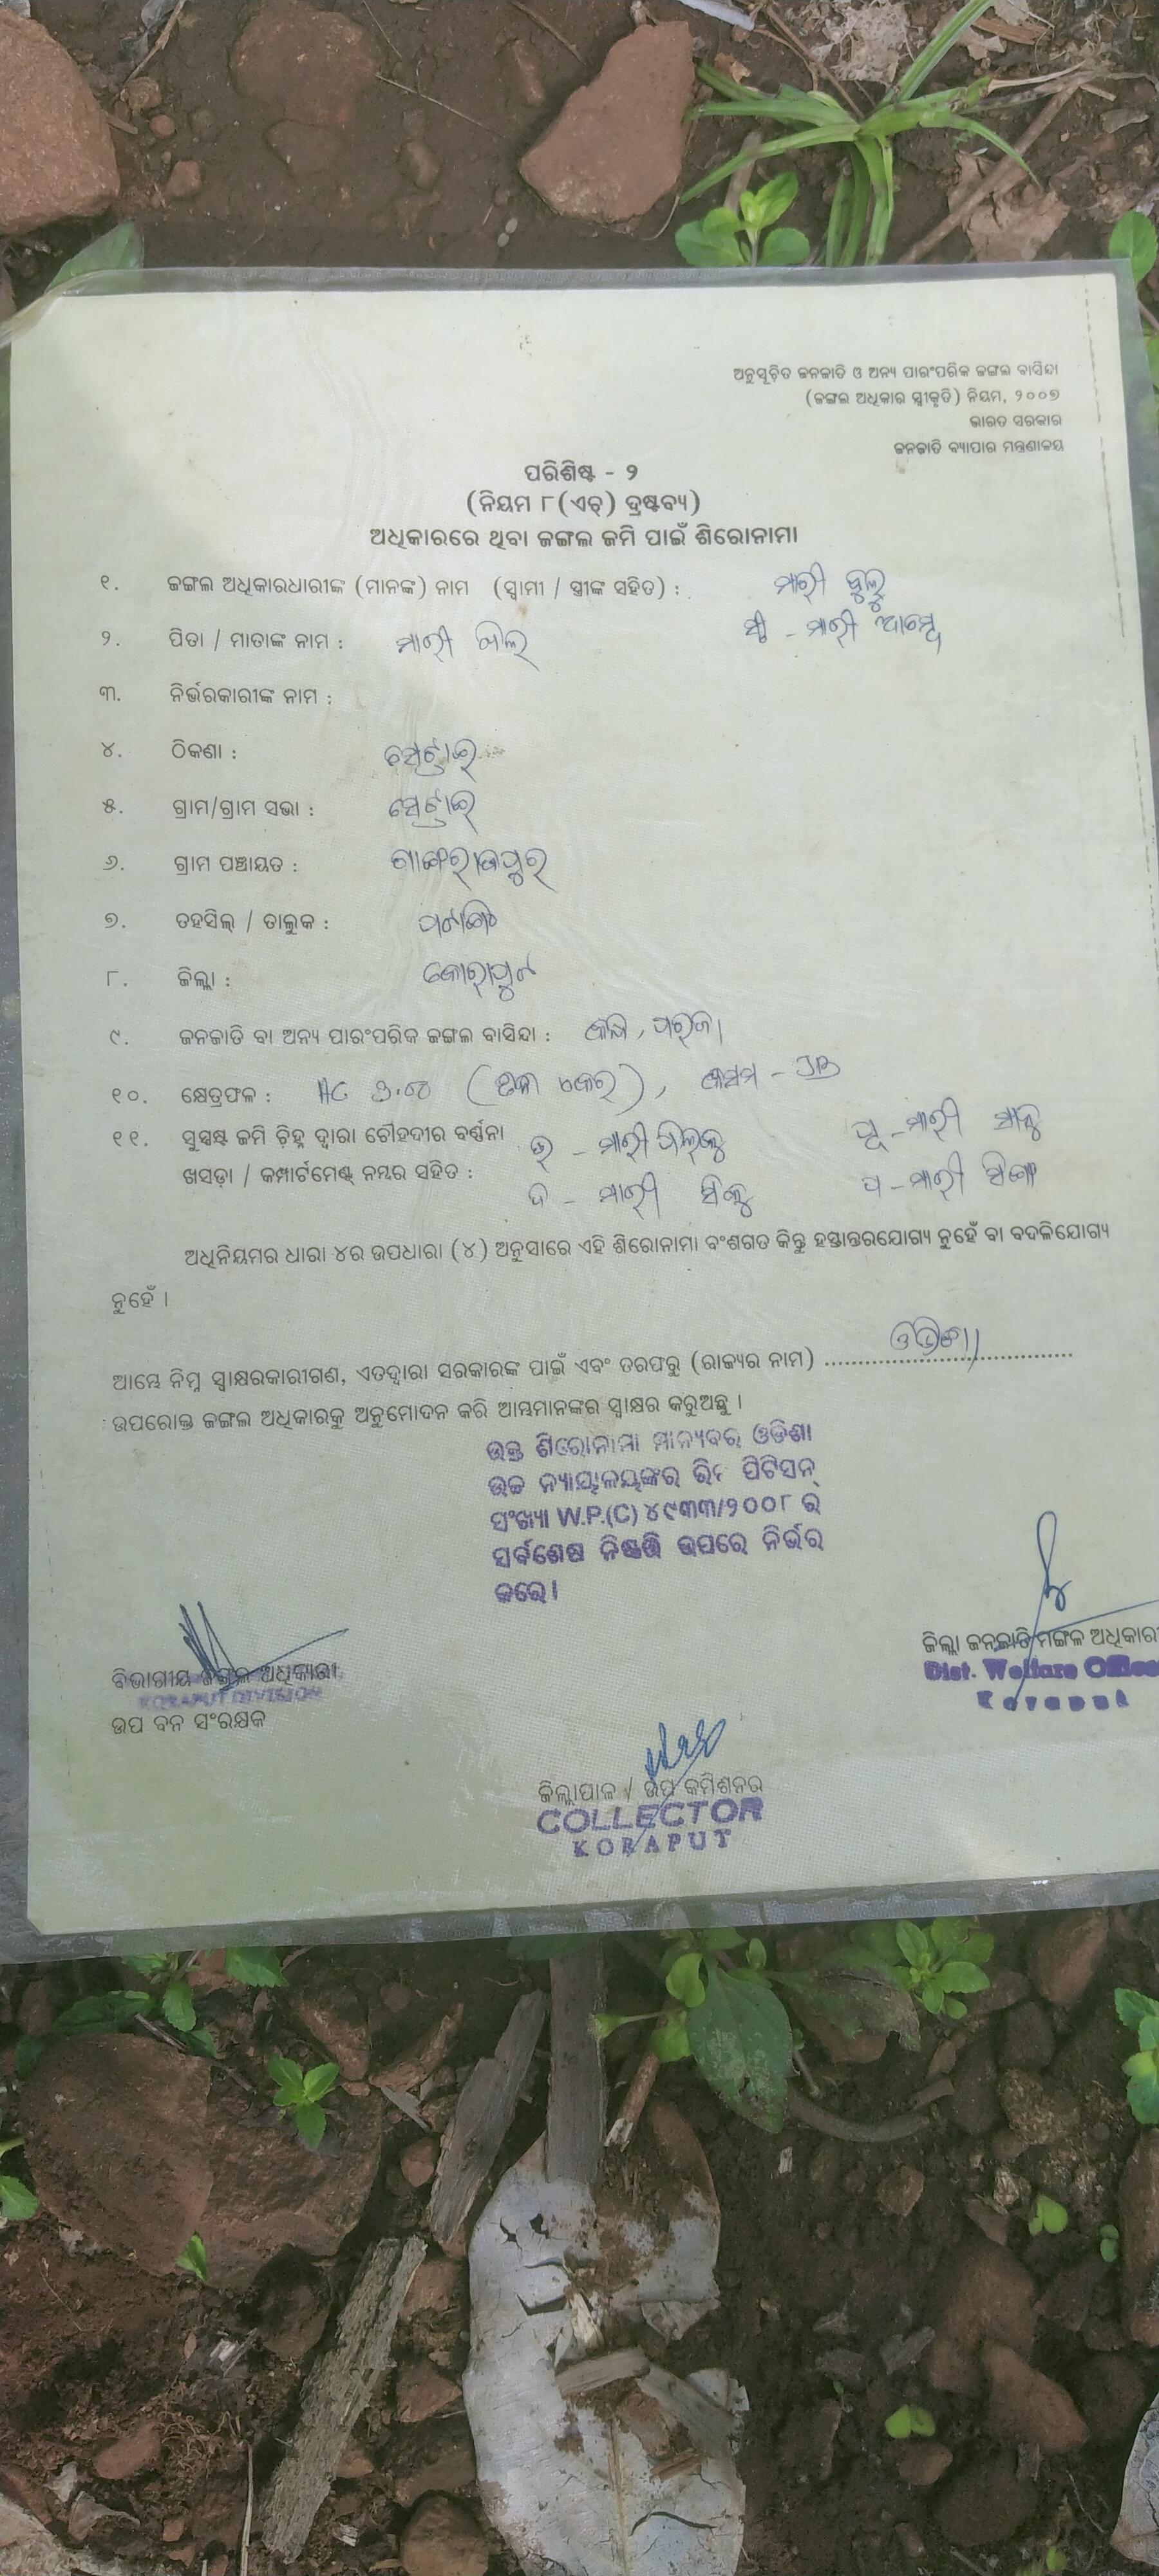 ଅନୁସୂଚିତ ଜନଜାତି ଓ ଅନ୍ୟ ପାରଂପରିକ ଜଙ୍ଗଲ ବାସିନ୍ଦା
(ଜଙ୍ଗଲ ଅଧିକାର ସ୍ୱୀକୃତି) ନିୟମ, ୨୦୦୭
ଭାରତ ସରକାର
ଜନଜାତି ବ୍ୟାପାର ମନ୍ତ୍ରଣାଳୟ
ପରିଶିଷ୍ଟ - ୨
(ନିୟମ ୮(ଏଚ୍) ଦ୍ରଷ୍ଟବ୍ୟ)
ଅଧିକାରରେ ଥିବା ଜଙ୍ଗଲ ଜମି ପାଇଁ ଶିରୋନାମା
୧. ଜଙ୍ଗଲ ଅଧିକାରଧାରୀଙ୍କ (ମାନଙ୍କ) ନାମ (ସ୍ୱାମୀ / ସ୍ତ୍ରୀଙ୍କ ସହିତ) : ମାରୀ
ସ୍ତ୍ରୀ - ମାରୀ
୨. ପିତା / ମାତାଙ୍କ ନାମ : ମାରୀ
୩. ନିର୍ଭରକାରୀଙ୍କ ନାମ :
୪. ଠିକଣା :
୫. ଗ୍ରାମ/ଗ୍ରାମ ସଭା :
୬. ଗ୍ରାମ ପଞ୍ଚାୟତ :
୭. ତହସିଲ୍ / ତାଲୁକ : ପଟାଙ୍ଗି
୮. ଜିଲ୍ଲା : କୋରାପୁଟ
୯. ଜନଜାତି ବା ଅନ୍ୟ ପାରଂପରିକ ଜଙ୍ଗଲ ବାସିନ୍ଦା : ପରଜା
୧୦. କ୍ଷେତ୍ରଫଳ : AC
୧୧. ସୁସ୍ପଷ୍ଟ ଜମି ଚିହ୍ନ ଦ୍ୱାରା ଚୌହଦୀର ବର୍ଣ୍ଣନା ଉ - ମାରୀ ପୂ - ମାରୀ
ଖସଡ଼ା / କମ୍ପାର୍ଟମେଣ୍ଟ୍ ନମ୍ବର ସହିତ : ଦ - ମାରୀ ପ - ମାରୀ
ଅଧିନିୟମର ଧାରା ୪ର ଉପଧାରା (୪) ଅନୁସାରେ ଏହି ଶିରୋନାମା ବଂଶଗତ କିନ୍ତୁ ହସ୍ତାନ୍ତରଯୋଗ୍ୟ ନୁହେଁ ବା ବଦଳିଯୋଗ୍ୟ
ନୁହେଁ ।
ଆମ୍ଭେ ନିମ୍ନ ସ୍ୱାକ୍ଷରକାରୀଗଣ, ଏତଦ୍ୱାରା ସରକାରଙ୍କ ପାଇଁ ଏବଂ ତରଫରୁ (ରାଜ୍ୟର ନାମ) ଓଡିଶା
ଉପରୋକ୍ତ ଜଙ୍ଗଲ ଅଧିକାରକୁ ଅନୁମୋଦନ କରି ଆମ୍ଭମାନଙ୍କର ସ୍ୱାକ୍ଷର କରୁଅଛୁ ।
ଉକ୍ତ ଶିରୋନାମା ମାନ୍ୟବର ଓଡିଶା
ଉଚ୍ଚ ନ୍ୟାୟାଳୟଙ୍କର ରିଟ ପିଟିସନ୍
ସଂଖ୍ୟା W.P.(C) ୪୯୩୩/୨୦୦୮ ର
ସର୍ବଶେଷ ନିଷ୍ପତ୍ତି ଉପରେ ନିର୍ଭର
କରେ ।
ଜିଲ୍ଲା ଜନଜାତି ମଙ୍ଗଳ ଅଧିକାରୀ
Dist. Welfare Officer
Koraput
ବିଭାଗୀୟ ଜଙ୍ଗଲ ଅଧିକାରୀ
KORAPUT DIVISION
ଉପ ବନ ସଂରକ୍ଷକ
ଜିଲ୍ଲାପାଳ / ଉପ କମିଶନର
COLLECTOR
KORAPUT